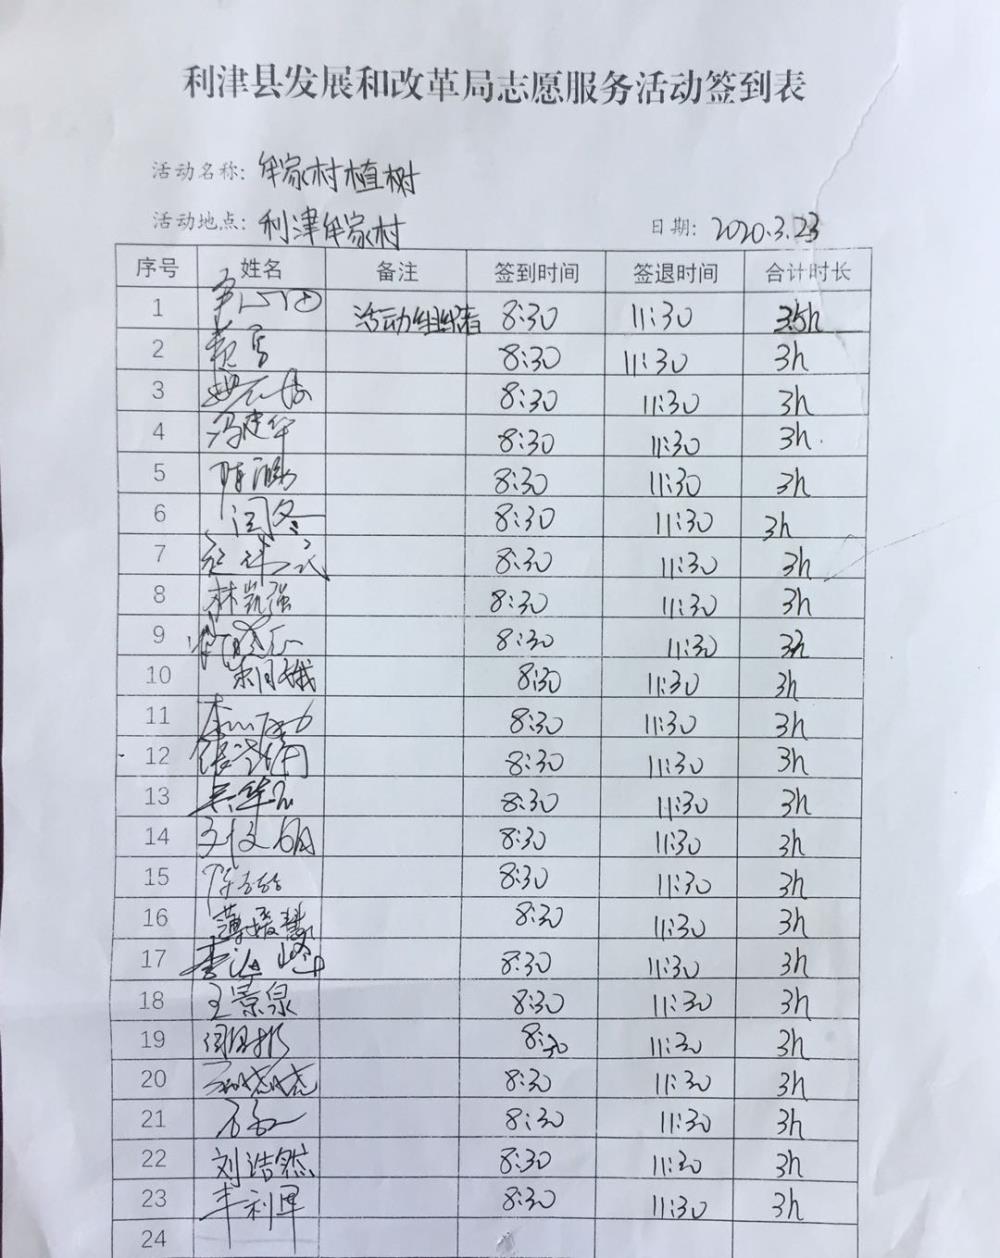 利津县发展和改革局志愿服务活动签到表
活动名称: 牟家村植树
活动地点: 利津牟家村 日期: 2020.3.23
序号 姓名 备注 签到时间 签退时间 合计时长
1 活动组织者 8:30 11:30 3.5h
2 8:30 11:30 3h
3 8:30 11:30 3h
4 冯建华 8:30 11:30 3h
5 8:30 11:30 3h
6 闫冬 8:30 11:30 3h
7 8:30 11:30 3h
8 林凯强 8:30 11:30 3h
9 8:30 11:30 3h
10 8:30 11:30 3h
11 8:30 11:30 3h
12 8:30 11:30 3h
13 8:30 11:30 3h
14 8:30 11:30 3h
15 8:30 11:30 3h
16 8:30 11:30 3h
17 8:30 11:30 3h
18 王景泉 8:30 11:30 3h
19 8:30 11:30 3h
20 8:30 11:30 3h
21 8:30 11:30 3h
22 刘浩然 8:30 11:30 3h
23 8:30 11:30 3h
24